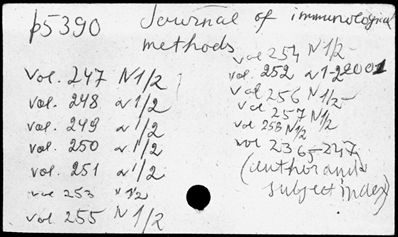 p5390 Journal of immunological
methods
vol. 247 N 1/2
vol. 248 N 1/2
vol. 249 N 1/2
vol. 250 N 1/2
vol. 251 N 1/2
vol 253 N 1/2
vol 255 N 1/2
vol 254 N 1/2
vol. 252 N 1-2 2001
vol 256 N 1/2
vol 257 N 1/2
vol 258 N 1/2
vol 236-247
(author and
subject index)